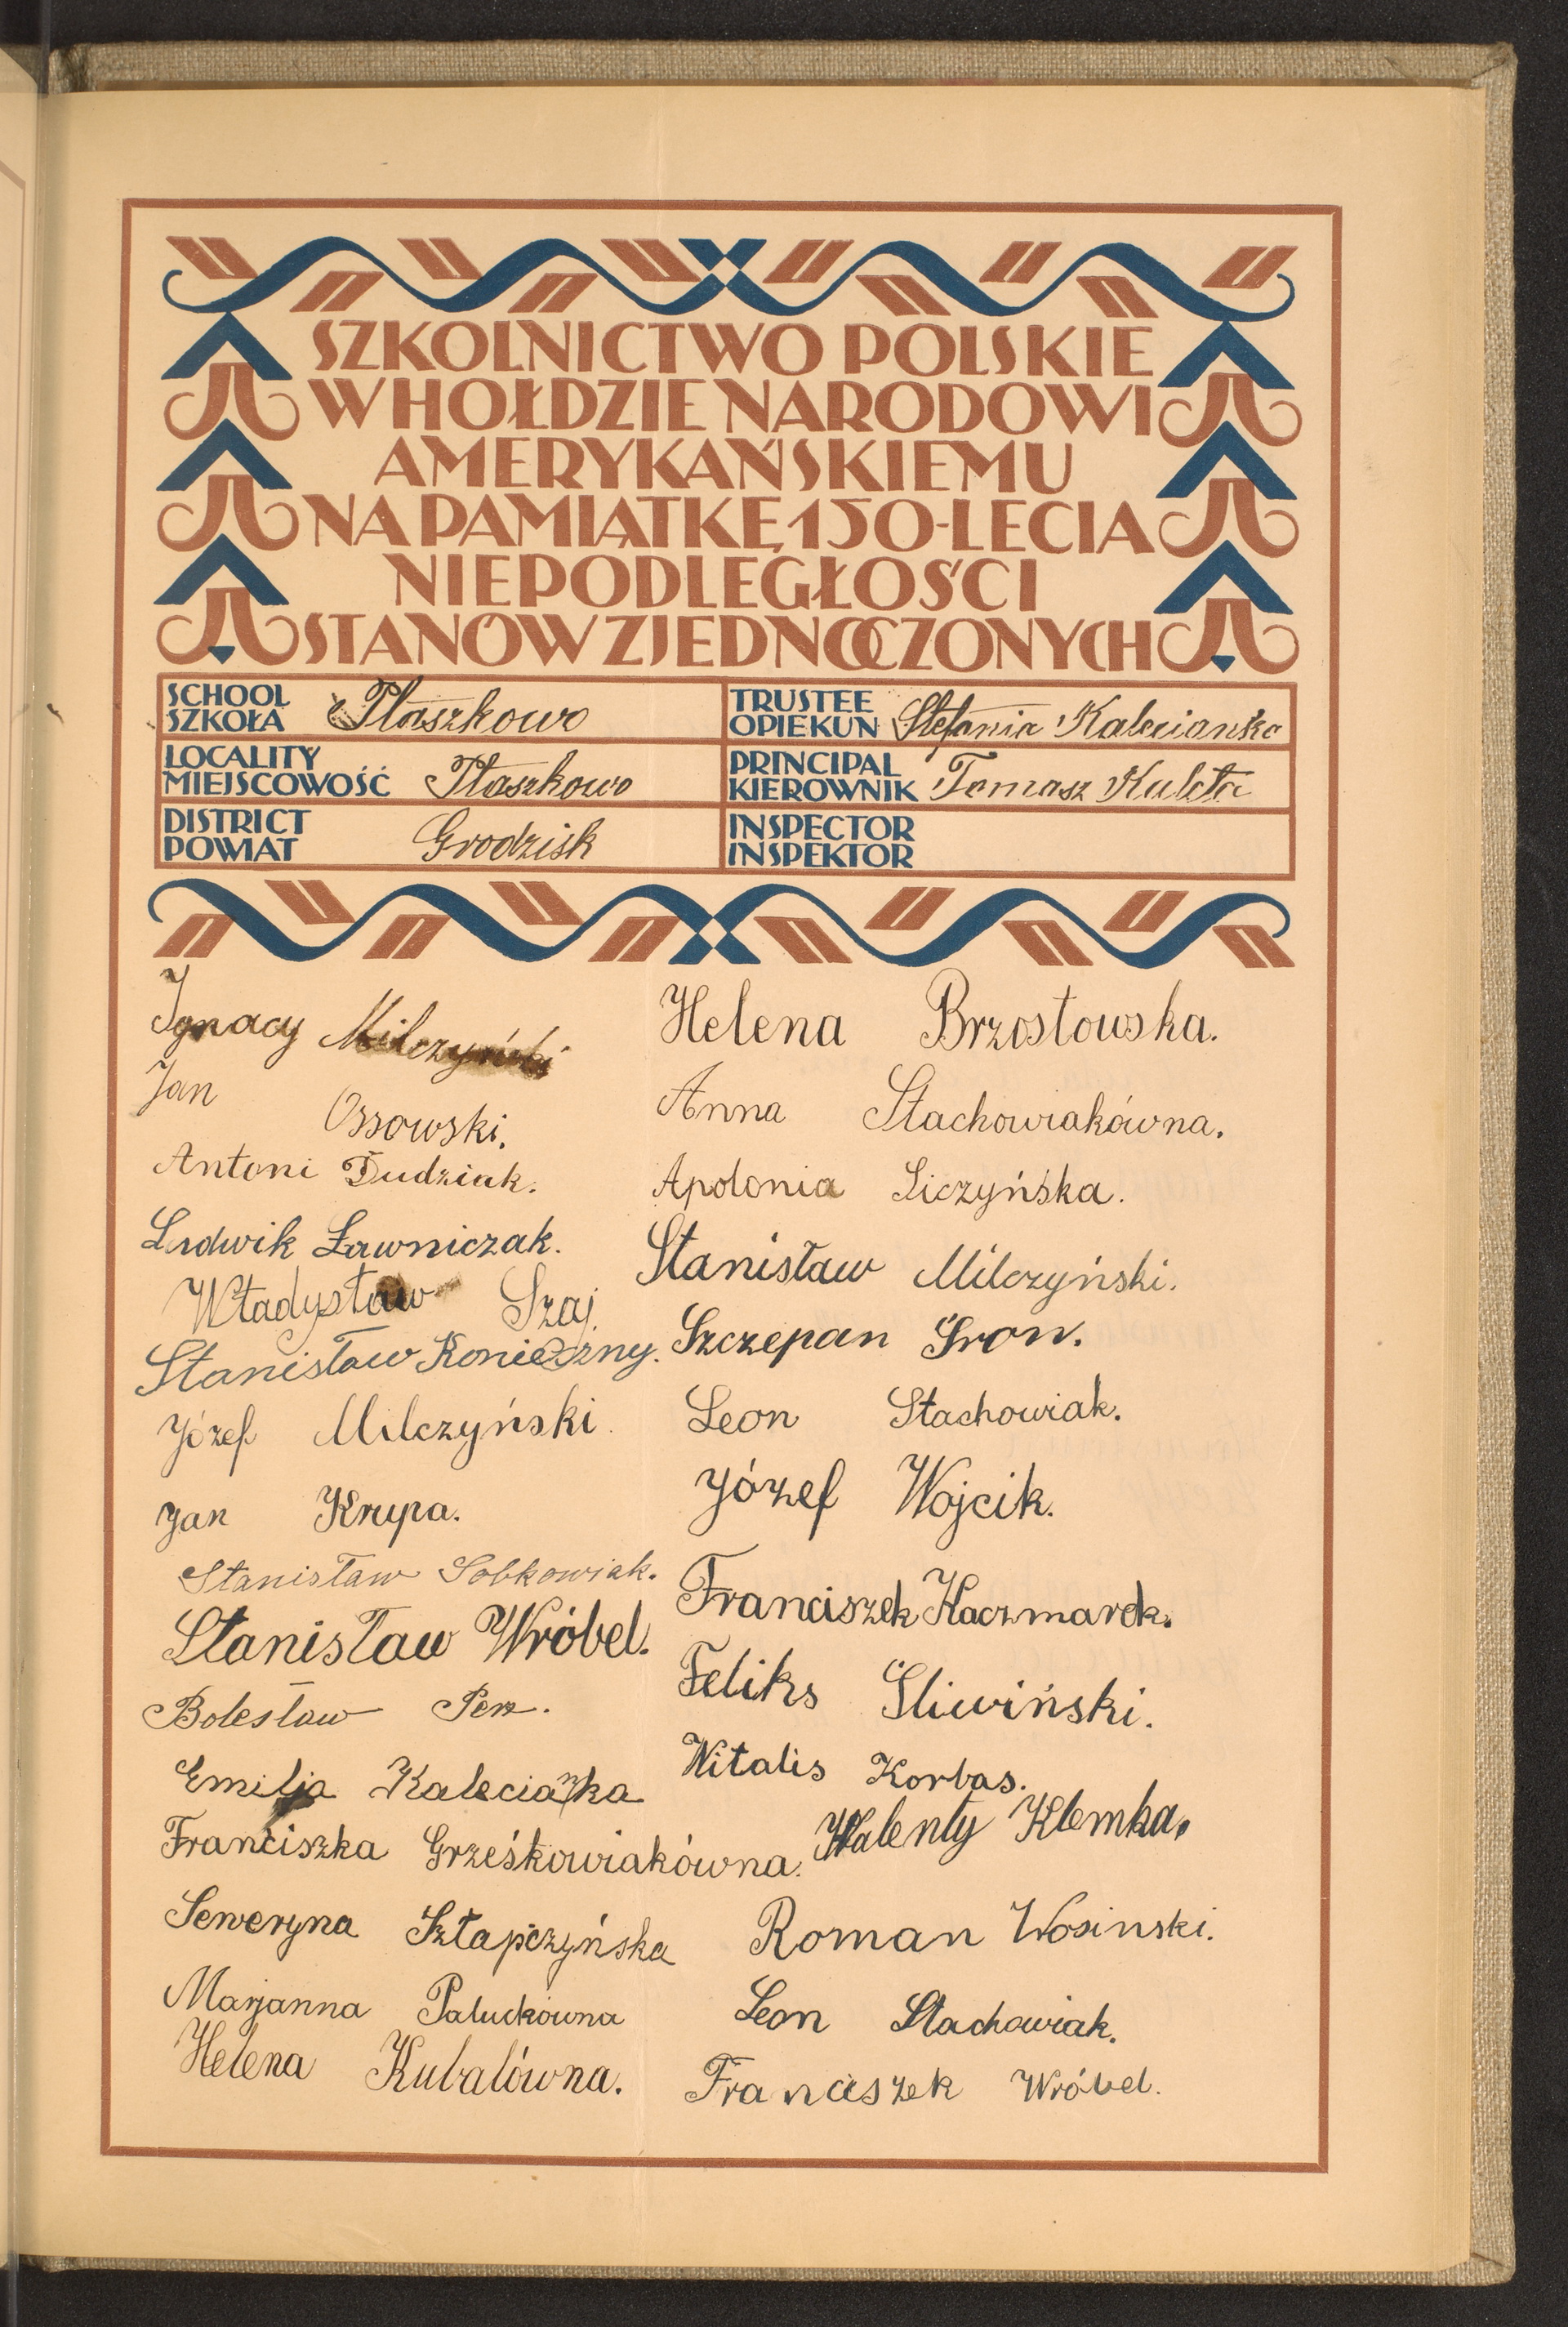 SZKOLNICTWO POLSKIE
W HOŁDZIE NARODOWI
AMERYKAŃSKIEMU
NA PAMIĄTKĘ 150-LECIA
NIEPODLEGŁOŚCI
STANÓW ZJEDNOCZONYCH
SCHOOL
SZKOŁA Ptaszkowo
LOCALITY
MIEJSCOWOŚĆ Ptaszkowo
DISTRICT
POWIAT Grodzisk
TRUSTEE
OPIEKUN Stefania Kalecianka
PRINCIPAL
KIEROWNIK Tomasz Kuleta
INSPECTOR
INSPEKTOR
Ignacy Milczyński
Jan Ossowski.
Antoni Dudziak.
Ludwik Ławniczak.
Władysław Szaj.
Stanisław Konieczny.
Józef Milczyński
Jan Krupa.
Stanisław Sobkowiak.
Stanisław Wróbel.
Bolesław Perz.
Emilja Kalecianka
Franciszka Grześkowiakówna.
Seweryna Sztapczyńska
Marjanna Paluckówna
Helena Kubalówna.
Helena Brzostowska.
Anna Stachowiakówna.
Apolonia Liczyńska.
Stanisław Milczyński.
Szczepan Śron.
Leon Stachowiak.
Józef Wojcik.
Franciszek Kaczmarek.
Feliks Śliwiński.
Witalis Korbas.
Walenty Klemka.
Roman Wosinski.
Leon Stachowiak.
Franciszek Wróbel.